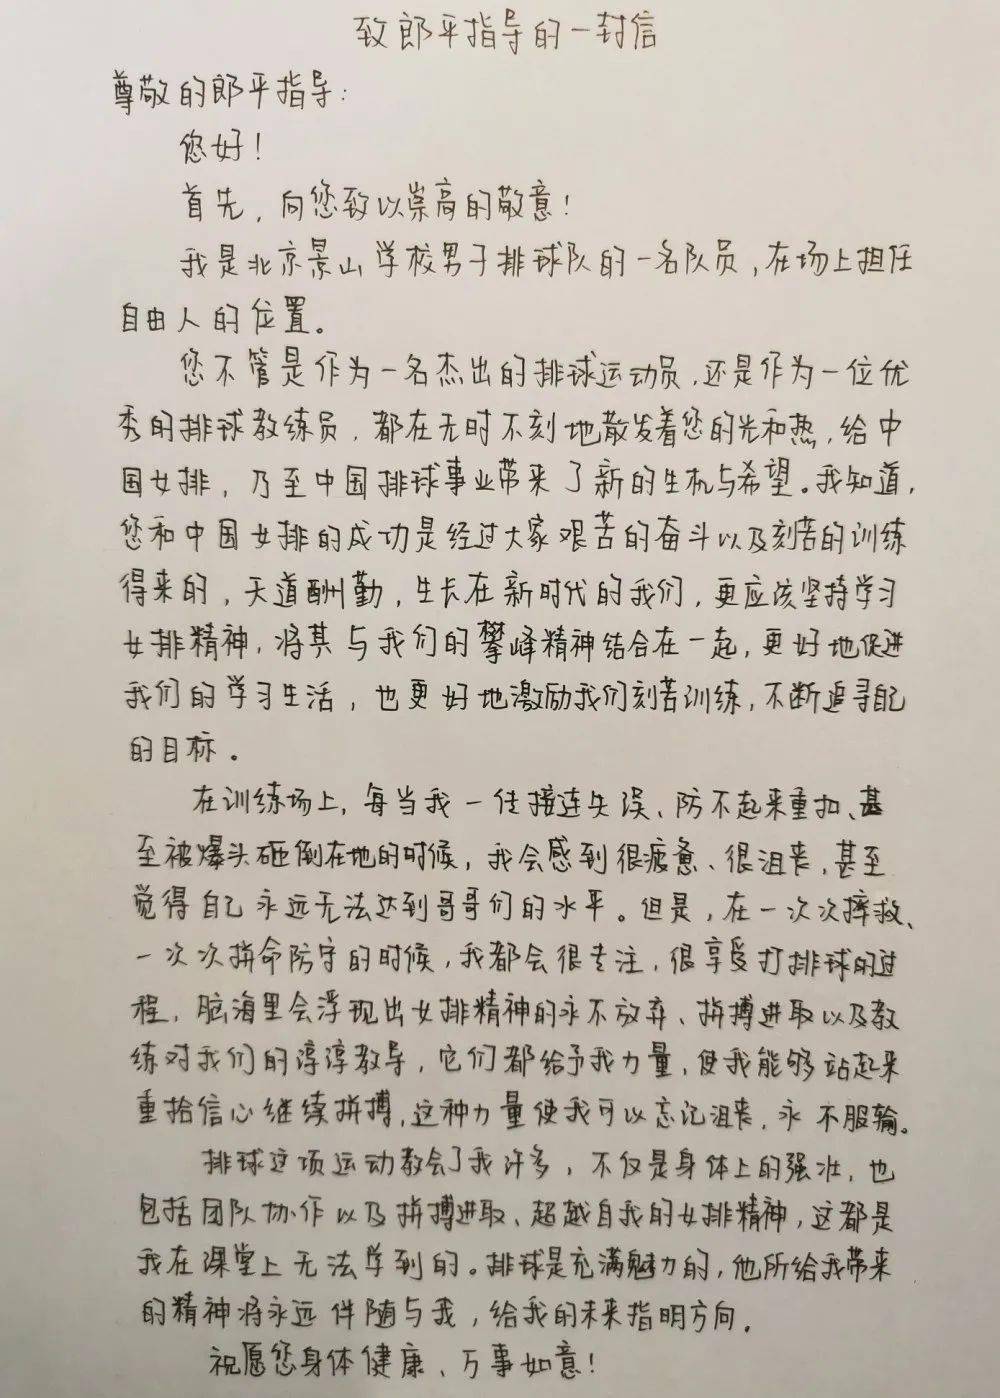 致郎平指导的一封信
尊敬的郎平指导:
您好!
首先,向您致以崇高的敬意!
我是北京景山学校男子排球队的一名队员,在场上担任
自由人的位置。
您不管是作为一名杰出的排球运动员,还是作为一位优
秀的排球教练员,都在无时不刻地散发着您的光和热,给中
国女排,乃至中国排球事业带来了新的生机与希望。我知道,
您和中国女排的成功是经过大家艰苦的奋斗以及刻苦的训练
得来的,天道酬勤,生长在新时代的我们,更应该坚持学习
女排精神,将其与我们的攀峰精神结合在一起,更好地促进
我们的学习生活,也更好地激励我们刻苦训练,不断追寻自己
的目标。
在训练场上,每当我一传接连失误、防不起来重扣、甚
至被爆头砸倒在地的时候,我会感到很疲惫、很沮丧,甚至
觉得自己永远无法达到哥哥们的水平。但是,在一次次摔救、
一次次拼命防守的时候,我都会很专注,很享受打排球的过
程,脑海里会浮现出女排精神的永不放弃、拼搏进取以及教
练对我们的谆谆教导,它们都给予我力量,使我能够站起来
重拾信心继续拼搏,这种力量使我可以忘记沮丧,永不服输。
排球这项运动教会了我许多,不仅是身体上的强壮,也
包括团队协作以及拼搏进取、超越自我的女排精神,这都是
我在课堂上无法学到的。排球是充满魅力的,他所给我带来
的精神将永远伴随与我,给我的未来指明方向。
祝愿您身体健康、万事如意!